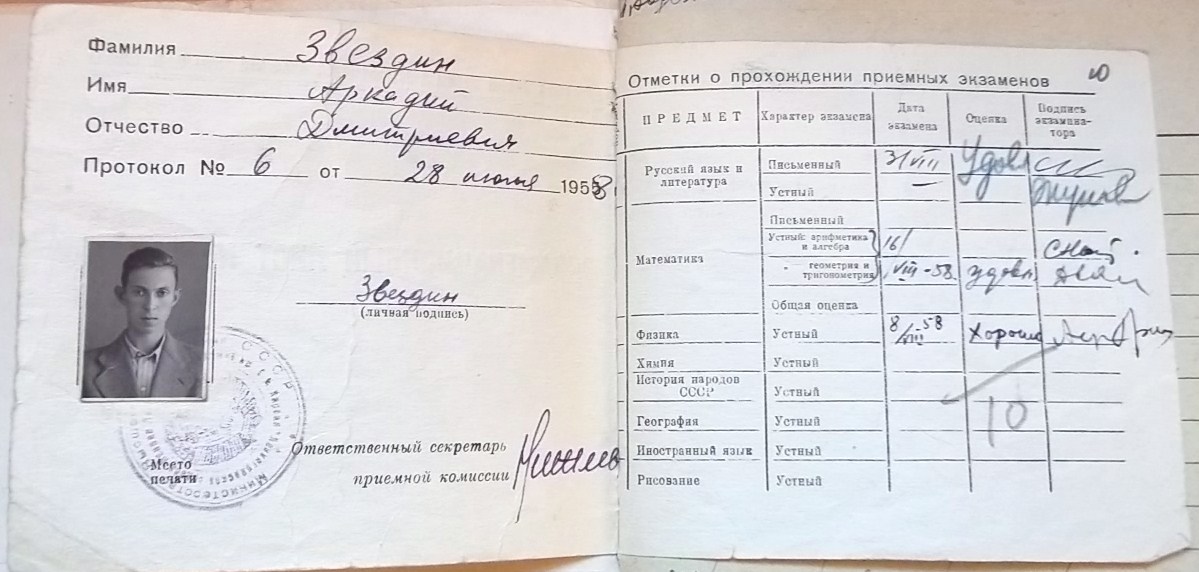 Фамилия Звездин
Имя Аркадий
Отчество Дмитриевич
Протокол № 6 от 28 июля 1958
Звездин
(личная подпись)
СССР
Место
печати
Ответственный секретарь
приемной комиссии
Отметки о прохождении приемных экзаменов
ПРЕДМЕТ Характер экзамена Дата экзамена Оценка Подпись экзаминатора
Русский язык и литература Письменный 3/VIII Удовл
Устный —
Математика Письменный
Устный: арифметика и алгебра 16/
" геометрия и тригонометрия VIII-58. удовл
Общая оценка
Физика Устный 8/VIII 58 Хорошо
Химия Устный
История народов СССР Устный
География Устный
10
Иностранный язык Устный
Рисование Устный